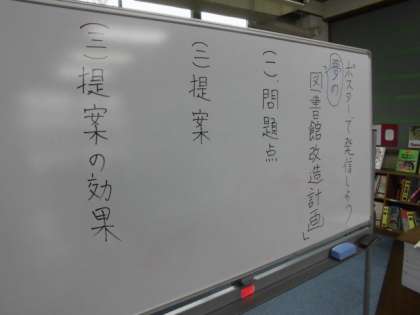 ポスターで発信しよう
夢の「図書館改造計画」
(一)、問題点
(二)提案
(三)提案の効果